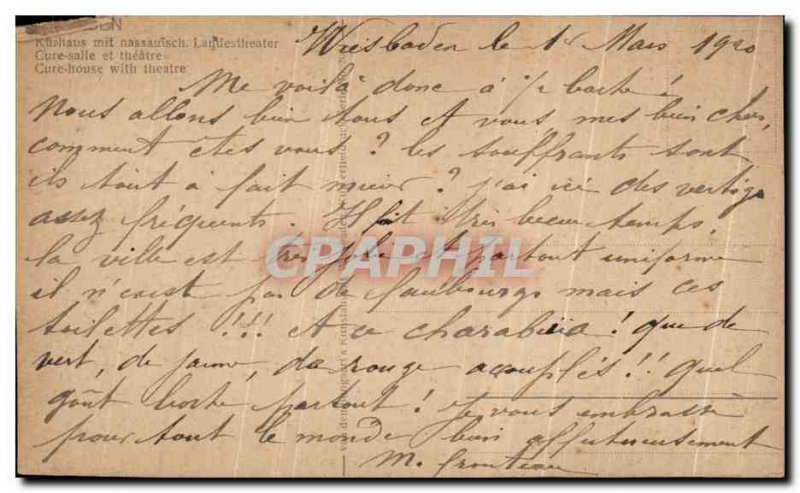 Kurhaus mit nassauisch. Landestheater
Cure-salle et théâtre
Cure-house with theatre
Wiesbaden le 1er Mars 1920
Me voilà donc à 1/2 boche !
Nous allons bien tous et vous mes bien chers,
comment êtes vous ? les souffrants sont
ils tout à fait mieux ? j'ai ici des vertiges
assez fréquents. Il fait très beau temps,
la ville est très jolie et partout uniforme
il n'existe pas de faubourgs mais ces
toilettes !!! et ce charabia ! que de
vert, de jaune, de rouge accouplés !! quel
goût boche partout ! Je vous embrasse
pour tout le monde bien affectueusement
M.
CPAPHIL